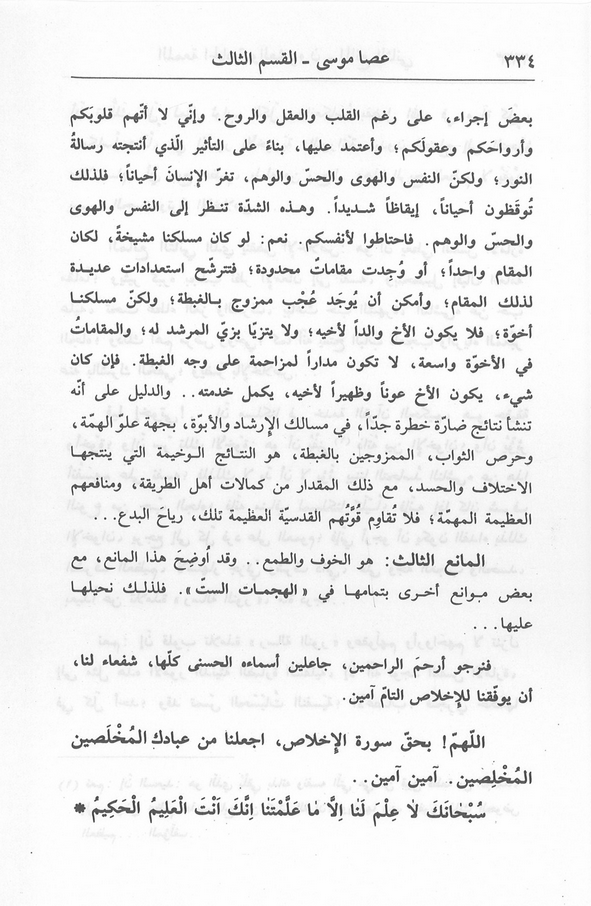 ٣٣٤ عصا موسى - القسم الثالث
بعضَ إجراء، على رغم القلب والعقل والروح. وإنّي لا أتّهم قلوبَكم
وأرواحَكم وعقولَكم؛ وأعتمد عليها، بناءً على التأثير الّذي أنتجته رسالةُ
النور؛ ولكنّ النفس والهوى والحسّ والوهم، تغرّ الإنسانَ أحياناً؛ فلذلك
تُوقَظون أحياناً، إيقاظاً شديداً. وهذه الشدّة تنظر إلى النفس والهوى
والحسّ والوهم. فاحتاطوا لأنفسكم. نعم: لو كان مسلكنا مشيخةً، لكان
المقام واحداً؛ أو وُجِدت مقاماتٌ محدودة؛ فتترشّح استعدادات عديدة
لذلك المقام؛ وأمكن أن يُوجَد عُجْب ممزوج بالغبطة؛ ولكنّ مسلكنا
أخوّة؛ فلا يكون الأخ والداً لأخيه؛ ولا يتزيّا بزيّ المرشد له؛ والمقاماتُ
في الأخوّة واسعة، لا تكون مداراً لمزاحمة على وجه الغبطة. فإن كان
شيء، يكون الأخ عوناً وظهيراً لأخيه، يكمل خدمته.. والدليل على أنّه
تنشأ نتائج ضارّة خطرة جدّاً، في مسالك الإرشاد والأبوّة، بجهة علوّ الهمّة،
وحرص الثواب، الممزوجين بالغبطة، هو النتائج الوخيمة التي ينتجها
الاختلاف والحسد، مع ذلك المقدار من كمالات أهل الطريقة، ومنافعهم
العظيمة المهمّة؛ فلا تُقاوِم قُوَّتُهم القدسيّة العظيمة تلك، رياحَ البدع...
المانع الثالث: هو الخوف والطمع.. وقد أُوضِحَ هذا المانع، مع
بعض موانع أخرى بتمامها في «الهجمات الستّ». فلذلك نحيلها
عليها...
فنرجو أرحمَ الراحمين، جاعلين أسماءه الحسنى كلّها، شفعاء لنا،
أن يوفّقنا للإخلاص التامّ آمين.
اللّهمّ! بحقّ سورة الإخلاص، اجعلنا من عبادك المُخْلَصين
المُخْلِصين. آمين آمين..
سُبْحَانَكَ لَا عِلْمَ لَنَا اِلَّا مَا عَلَّمْتَنَا اِنَّكَ اَنْتَ الْعَلِيمُ الْحَكِيمُ *